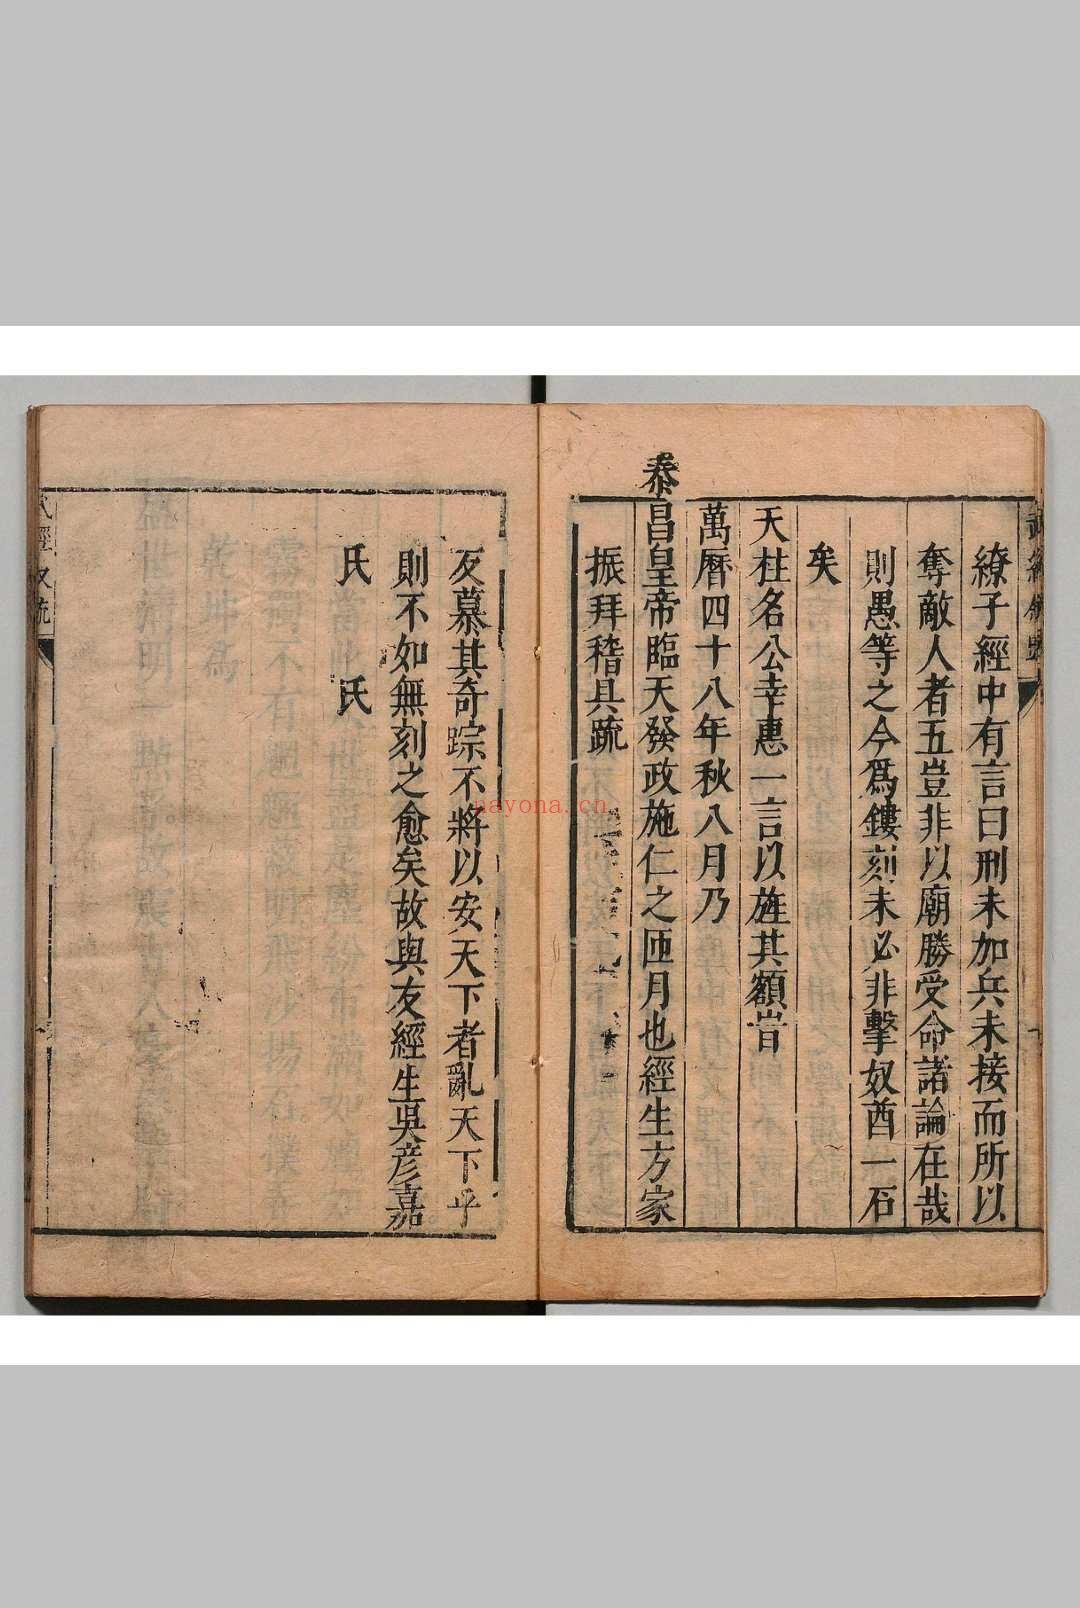 繚子經中有言曰刑未加兵未接而所以
奪敵人者五豈非以廟勝受命諸論在哉
則愚等之今爲鏤刻未必非擊奴酋一石
矣
天柱名公幸惠一言以旌其額旹
萬曆四十八年秋八月乃
泰昌皇帝臨天發政施仁之匝月也經生方家
振拜稽具疏
友慕其奇踪不將以安天下者亂天下乎
則不如無刻之愈矣故與友經生吳彦嘉
氏 氏
nayona.cn